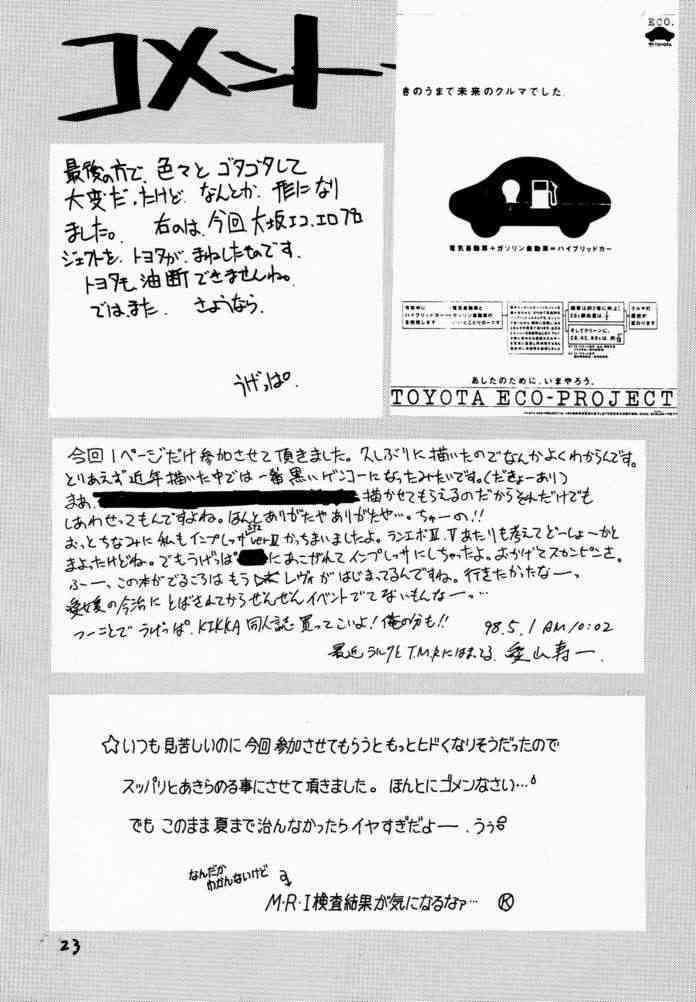 コメント
ECO.
TOYOTA
きのうまで未来のクルマでした.
電気自動車+ガソリン自動車=ハイブリッドカー
あしたのために、いまやろう。
TOYOTA ECO-PROJECT
最後の方で、色々と ゴタゴタして
大変だったけど なんとか 形になり
ました。 右のは、今回 大坂エコ.エロプロ
ジェクトを、トヨタが、まねしたものです.
トヨタも 油断できませんね。
では、また、 さようなら.
うげっぱ.
今回1ページだけ参加させて頂きました。久しぶりに描いたのでなんかよくわからんです。
とりあえず近年描いた中では一番黒いゲンコーになったみたいです。(だきょーあり)
まあ、 描かせてもらえるのだからそれだけでも
しあわせってもんですよね。ほんとありがたやありがたや…。ちゃーの!!
おっとちなみに私もインプレッサ STi verⅣ かっちまいましたよ。ランエボⅣ.Ⅴあたりも考えてどーしよーかと
まよったけどね。でもうげっぱ にあこがれてインプレッサにしちゃったよ。おかげでスカンピンさ。
ふー…、この本がでるころは もう レヴォ がはじまってるんですね。行きたかったなー…、
愛媛の今治に とばされてからぜんぜんイベントでてないもんなー…
つーことで うげっぱ. KIKKA 同人誌 買ってこいよ! 俺の分も!! 98.5.1 AM10:02
最近 ラルクと T.M.R.にはまってる 寿一.
☆いつも見苦しいのに今回参加させてもらうともっとヒドくなりそうだったので
スッパリとあきらめる事にさせて頂きました。ほんとにゴメンなさい…
でも このまま夏まで治んなかったらイヤすぎだよー. うぅ
なんだか
わかんないけど
M・R・I検査結果が気になるなァ… Ⓚ
23